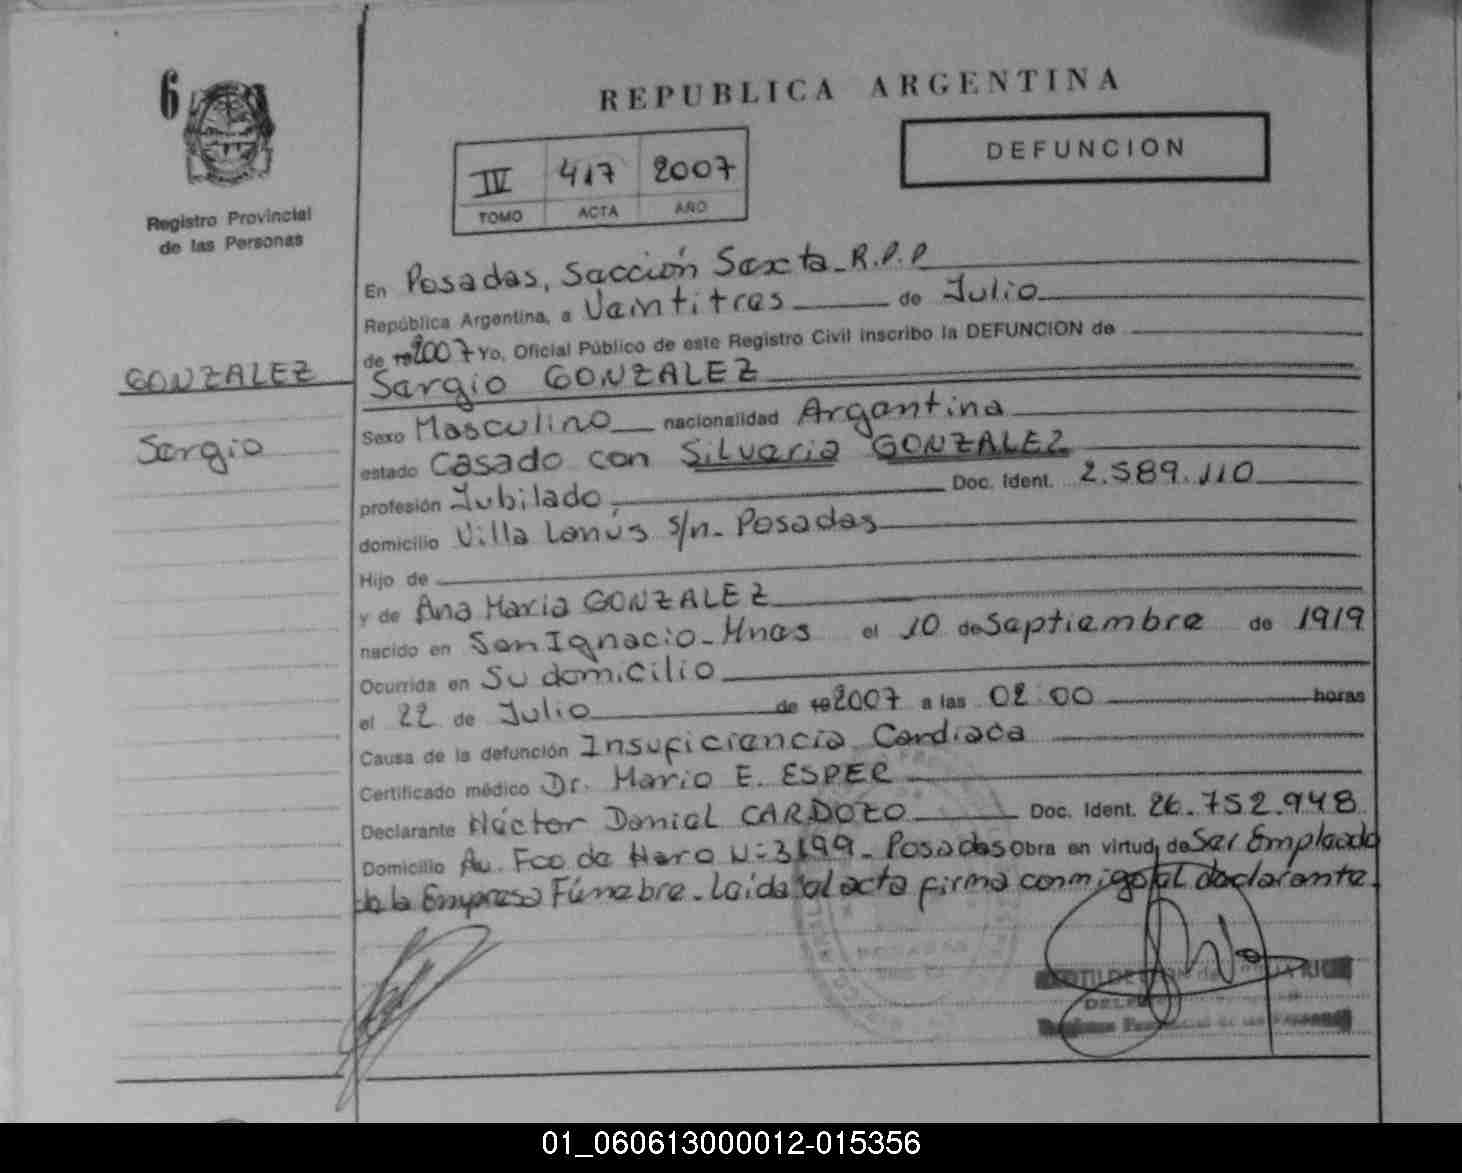 6
Registro Provincial
de las Personas
REPUBLICA ARGENTINA
DEFUNCION
IV 417 2007
TOMO ACTA AÑO
En Posadas, Sección Sexta_R.P.P
República Argentina, a Veintitres de Julio
de 19 2007 Yo, Oficial Público de este Registro Civil inscribo la DEFUNCION de
GONZALEZ
Sergio
Sergio GONZALEZ
Sexo Masculino nacionalidad Argentina
estado Casado con Silveria GONZALEZ
profesión Jubilado, Doc. Ident. 2.589.110
domicilio Villa Lanús s/n_ Posadas
Hijo de
y de Ana Maria GONZALEZ
nacido en San Ignacio_Mnes el 10 de Septiembre de 1919
Ocurrida en Su domicilio
el 22 de Julio de 19 2007 a las 02:00 horas
Causa de la defunción Insuficiencia Cardiaca
Certificado médico Dr. Mario E. ESPER
Declarante Héctor Daniel CARDOZO Doc. Ident. 26.752.948
Domicilio Av. Fco de Haro N= 3199_ Posadas Obra en virtud de Ser Empleado
de la Empresa Fúnebre_ Leída el acta firma conmigo el declarante.
01_060613000012-015356